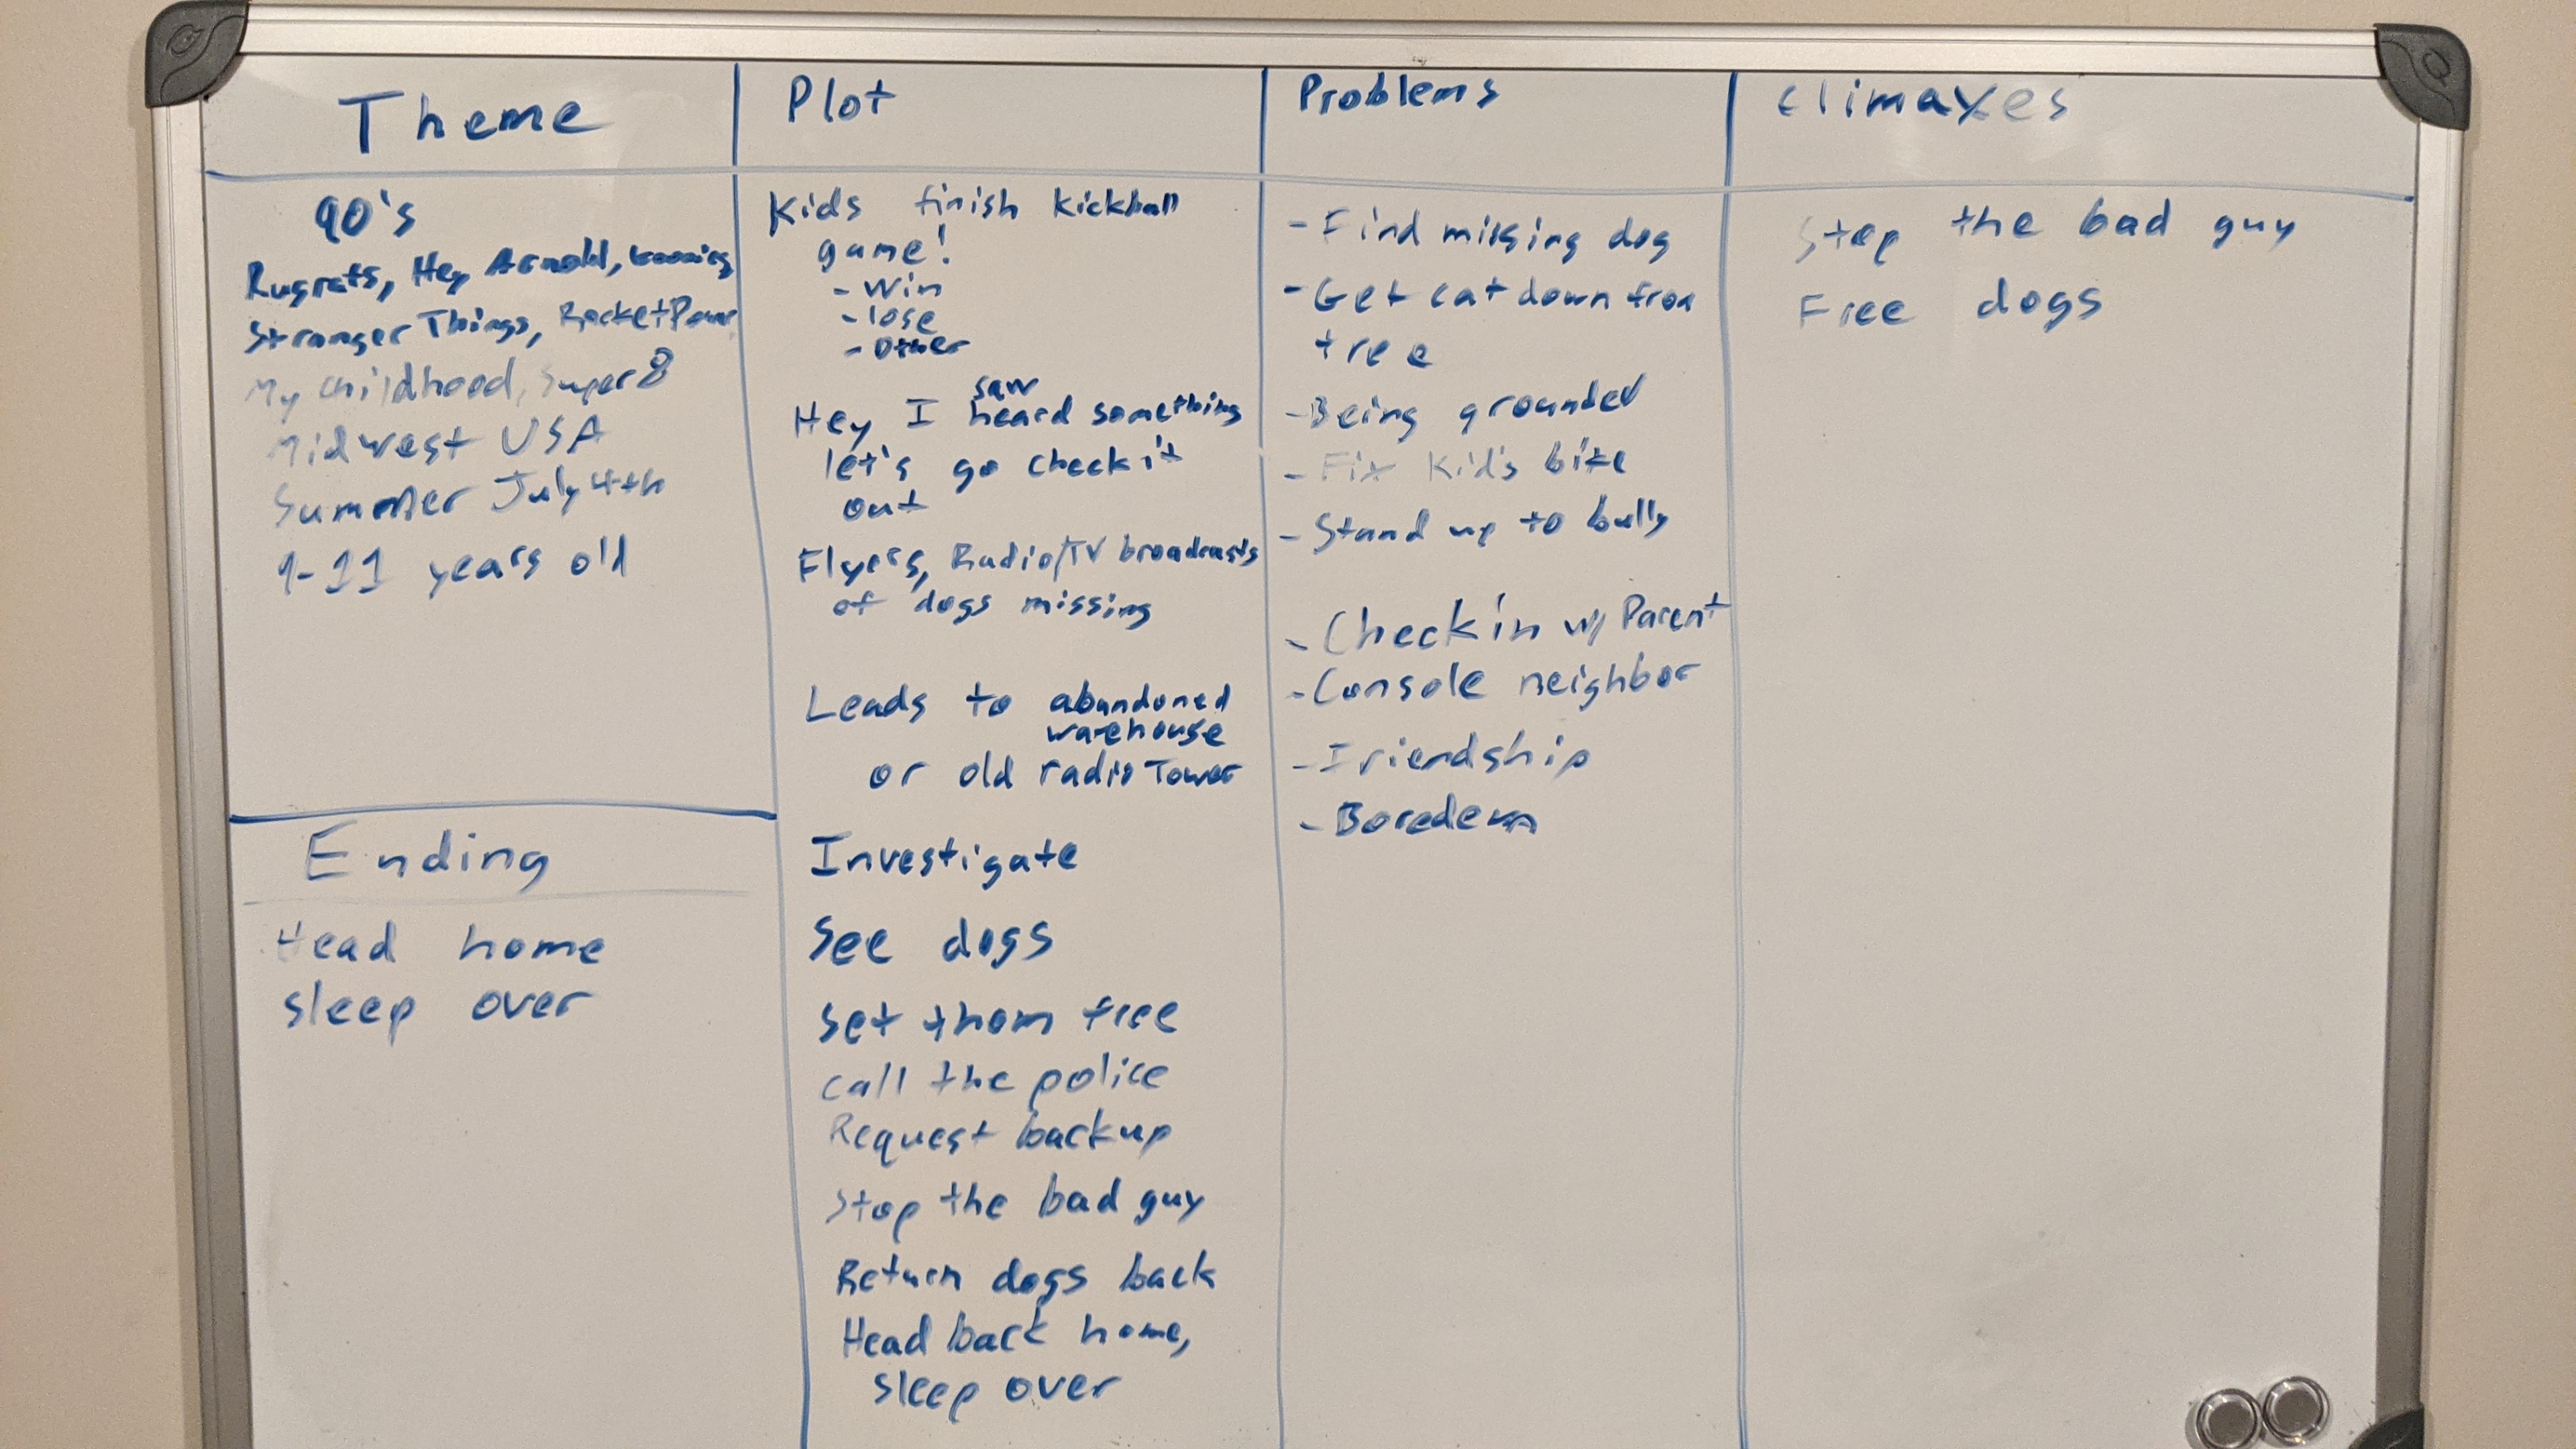 Theme
90's
Rugrats, Hey Arnold,
Stranger Things, Rocket Power
My childhood, Super 8
Midwest USA
Summer July 4th
9-11 years old
Ending
Head home
sleep over
Plot
Kids finish kickball
game!
- Win
- lose
- Other
saw
Hey I heard something
let's go check it
out
Flyers, Radio/TV broadcasts
of dogs missing
Leads to abandoned
warehouse
or old radio Tower
Investigate
See dogs
Set them free
Call the police
Request backup
Stop the bad guy
Return dogs back
Head back home,
sleep over
Problems
- Find missing dog
- Get cat down from
tree
- Being grounded
- Fix Kid's bike
- Stand up to bully
- Check in w/ Parent
- Console neighbor
- Friendship
- Boredem
Climaxes
Stop the bad guy
Free dogs